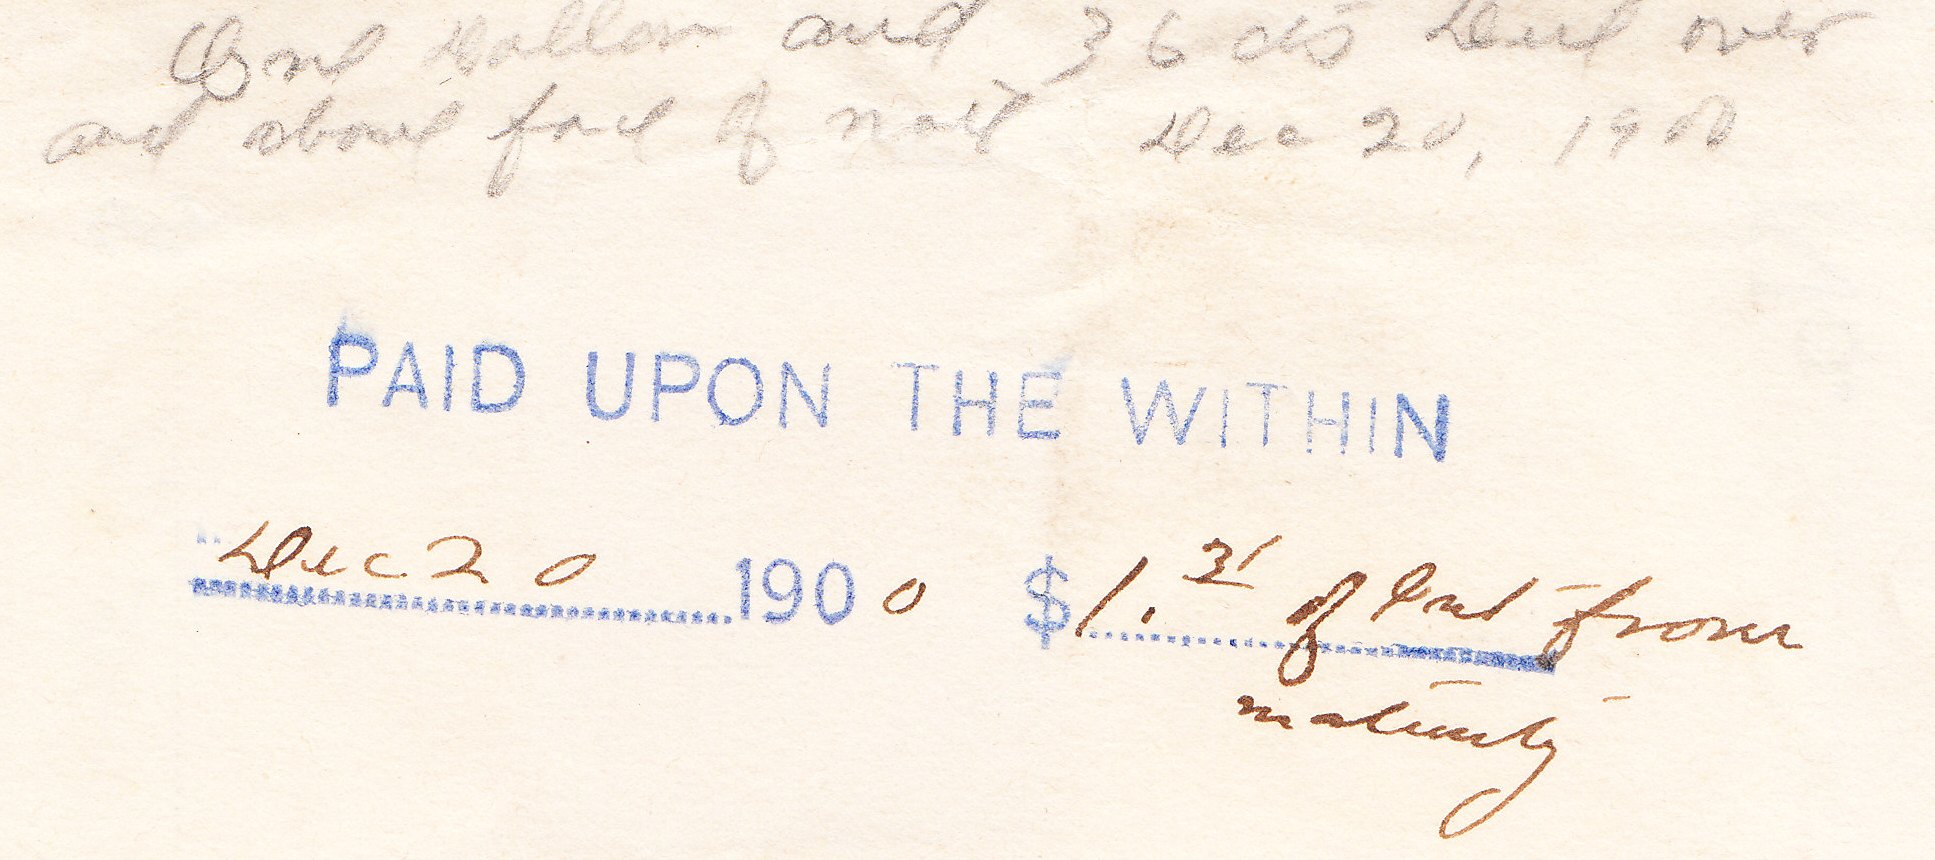 One Dollar and 36 cts Due over
and above face of note Dec 20, 1900
PAID UPON THE WITHIN
Dec 20 1900 $1. of Int from
maturity